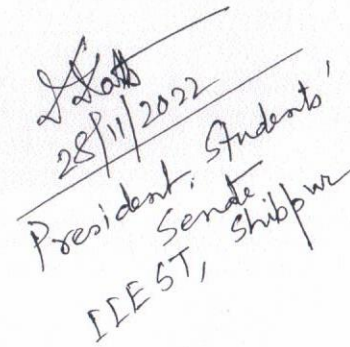 28/11/2022
President, Students'
Senate
IIEST, Shibpur